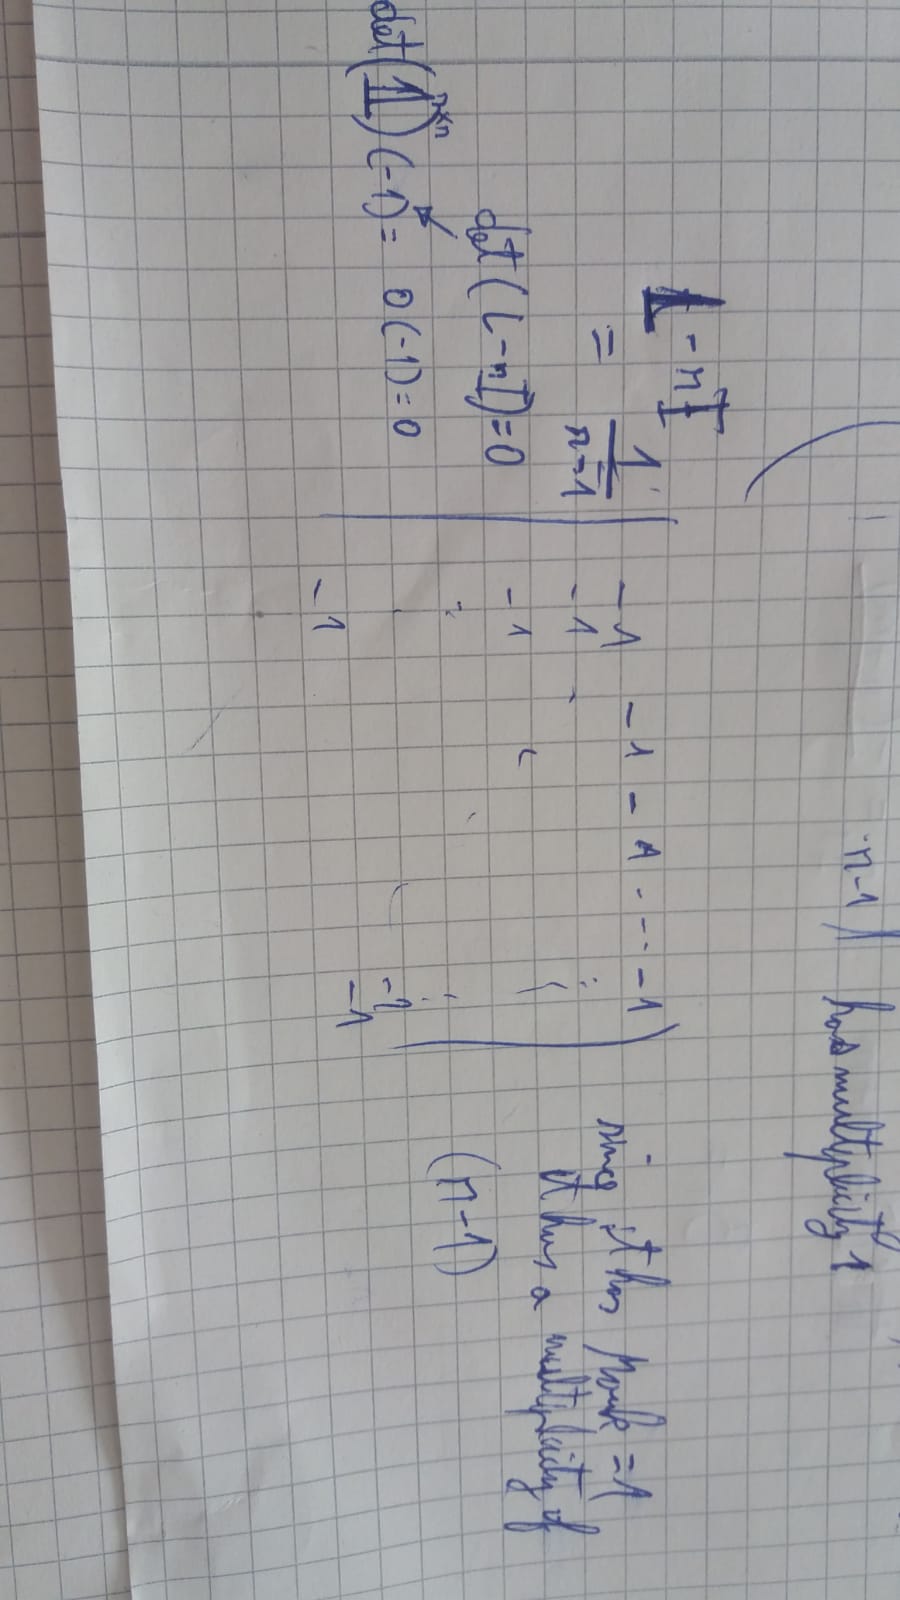 n-1 has multiplicity 1
L - nI
= 1/(n-1) | -1 -1 -1 ... -1 | since it has rank = 1
-1 it has a multiplicity of
-1
det(L-nI)=0 (n-1)
det(𝟙ⁿˣⁿ)(-1) = 0(-1)=0
-1
-1
-1